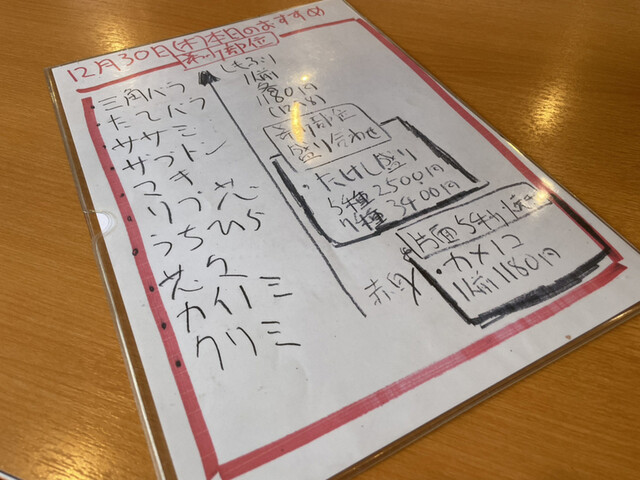 12月30日(木)本日のおすすめ
希少部位
・三角バラ
・たてバラ
・ササミ
・ザブトン
・マキ
・リブ芯
・うちひら
・芯
・カイノミ
・クリミ
しもふり
1人前
各
1180円
赤身
希少部位
盛り合わせ
・たけし盛り
5種2500円
7種3400円
片面5秒焼き
・カメノコ
1人前1180円